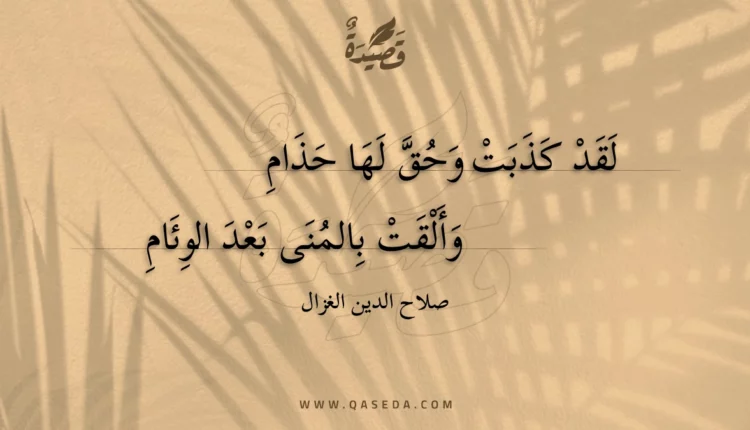 قَصِيدَةٌ
لَقَدْ كَذَبَتْ وَحُقَّ لَهَا حَذَامِ
وَأَلْقَتْ بِالمُنَى بَعْدَ الوِئَامِ
صلاح الدين الغزال
WWW.QASEDA.COM